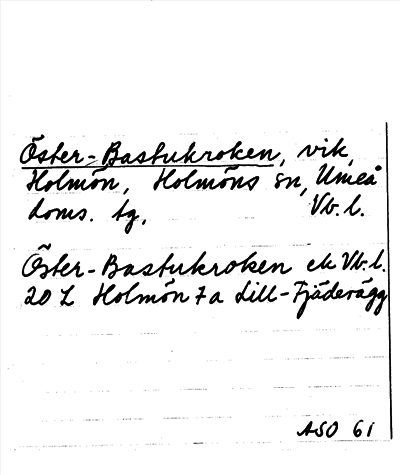 Öster-Bastukroken, vik,
Holmön, Holmöns sn, Umeå
doms. tg, Vb. l.
Öster-Bastukroken ek Vb. l.
20 L Holmön 7 a Lill-Fjäderägg
ASO 61